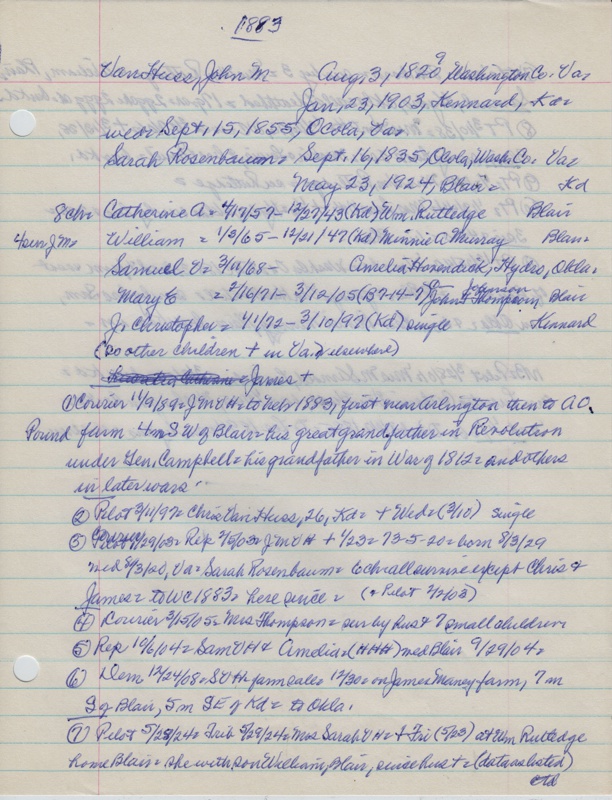 1883
Van Huss, John M Aug, 3, 1820, 9 Washington Co. Va.
Jan, 23, 1903, Kennard, Ka=
wed= Sept. 15, 1855, Ocola, Va.
Sarah Rosenbaum = Sept. 16, 1835, Ocola, Wash. Co. Va
May 23, 1924, Blair = Kd
8 ch= Catherine A = 4/17/57 - 12/27/43 (Kd) Wm. Rutledge Blair
William = 1/3/65 - 12/21/47 (Kd) Minnie A Murray Blair
Samuel V = 3/11/68 - Amelia Hoxendick, Hydro, Okla.
Mary E = 2/16/71 - 3/12/05 (B7-14-7) John Johnson Thompson, Blair
J. Christopher = 4/1/72 - 3/10/97 (Kd) single Kennard
(so other children + in Va. or elsewhere)
= James +
① Courier 11/9/89 = JMVH = to Neb 1883, first near Arlington then to A O.
Pound farm 4m SW of Blair = his great grandfather in Revolution
under Gen. Campbell = his grandfather in War of 1812 = and others
in later wars.
② Pilot 3/11/97 = Chris Van Huss, 26, Kd = + Wed = (3/10) single
③ Courier 1/29/03 = Rep 2/5/03 = JMVH + 1/23 = 73-5-20 = born 8/3/29
wed 8/3/20, Va = Sarah Rosenbaum = 6 ch all survive except Chris &
James = to WC 1883 = here since = (= Pilot 2/2/03)
④ Courier 3/15/05 = Mrs Thompson = sur by hus & 7 small children
⑤ Rep 10/6/04 = Sam VH & Amelia = (HHH) wed Blair 9/29/04 =
⑥ Dem 12/24/08 = SVH farm sale = 12/30 = on James Maney farm, 7 m
S of Blair, 5 m SE of Kd = to Okla.
⑦ Pilot 5/28/24 = Trib 5/29/24 = Mrs Sarah VH = + Fri (5/23) at Wm Rutledge
home Blair = she with son William, Blair, since hus + = (data as listed)
ctd